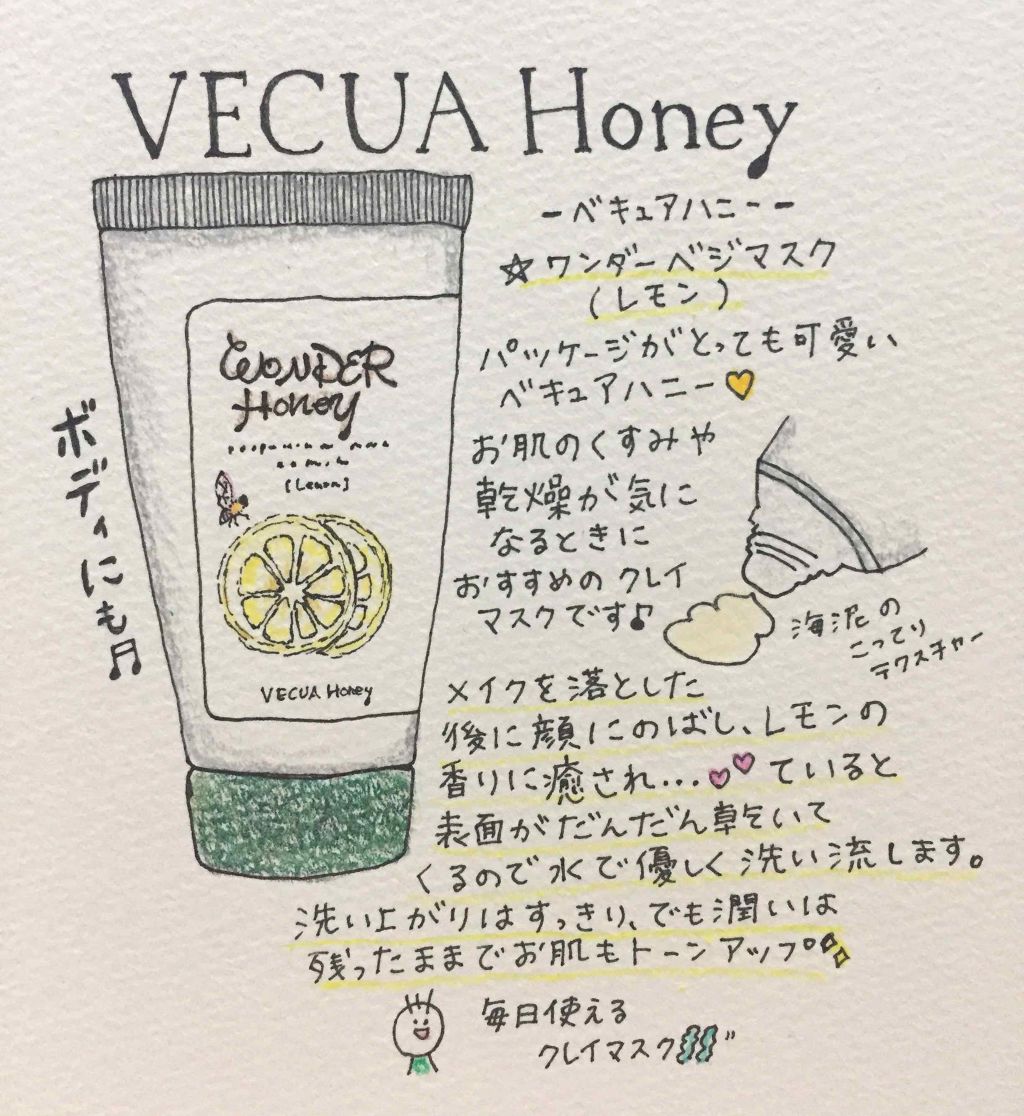 VECUA Honey
ーベキュアハニーー
☆ワンダーベジマスク
(レモン)
パッケージがとっても可愛い
ベキュアハニー
お肌のくすみや
乾燥が気に
なるときに
おすすめのクレイ
マスクです♪
海泥の
こってり
テクスチャー
メイクを落とした
後に顔にのばし、レモンの
香りに癒され...ていると
表面がだんだん乾いて
くるので水で優しく洗い流します。
洗い上がりはすっきり、でも潤いは
残ったままでお肌もトーンアップ
毎日使える
クレイマスク
ボディにも♬
WONDER
Honey
[Lemon]
VECUA Honey